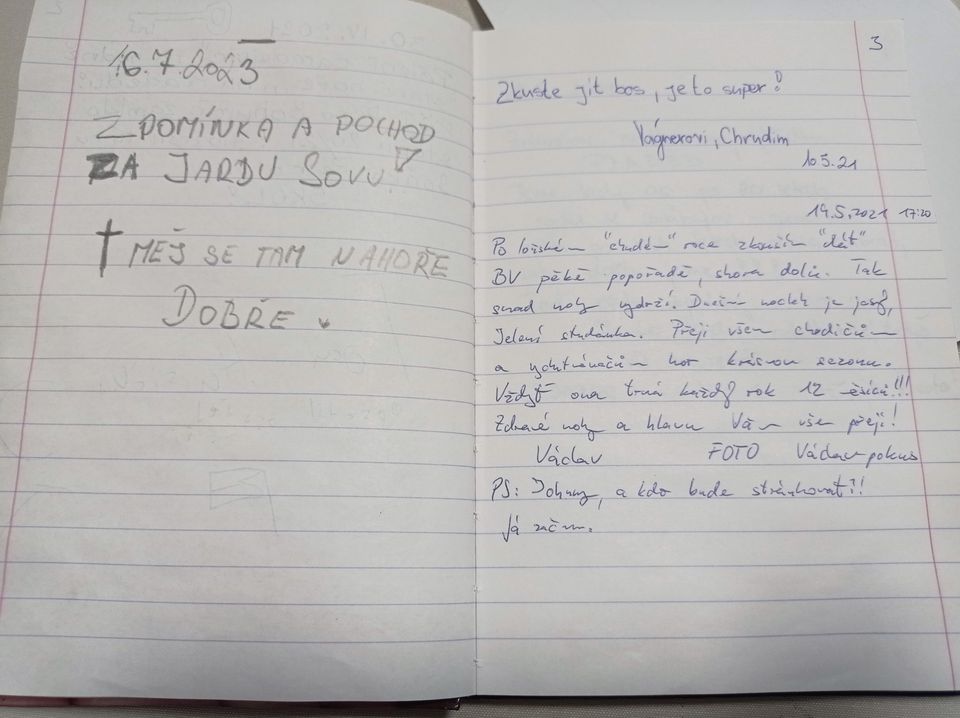 16.7.2023
ZPOMÍNKA A POCHOD
ZA JARDU SOVU
† MĚJ SE TAM NAHOŘE
DOBŘE
3
Zkuste jít bos, je to super!
Vágnerovi, Chrudim
10.5.21
19.5.2021 17:20
Po loňském "chudém" roce zkouším "dát"
BV pěkě popořadě, shora dolů. Tak
snad nohy vydrží. Dnešní nocleh je jasný,
Jelení studánka. Přeji všem chodičům
a vychutnávačům hor krásnou sezonu.
Vždyť ona trvá každý rok 12 !!!
Zdravé nohy a hlavu Vám všem přeji!
Václav FOTO Václav pokus
PS: Dohury, a kdo bude stránkovat?!!
Já začnu.